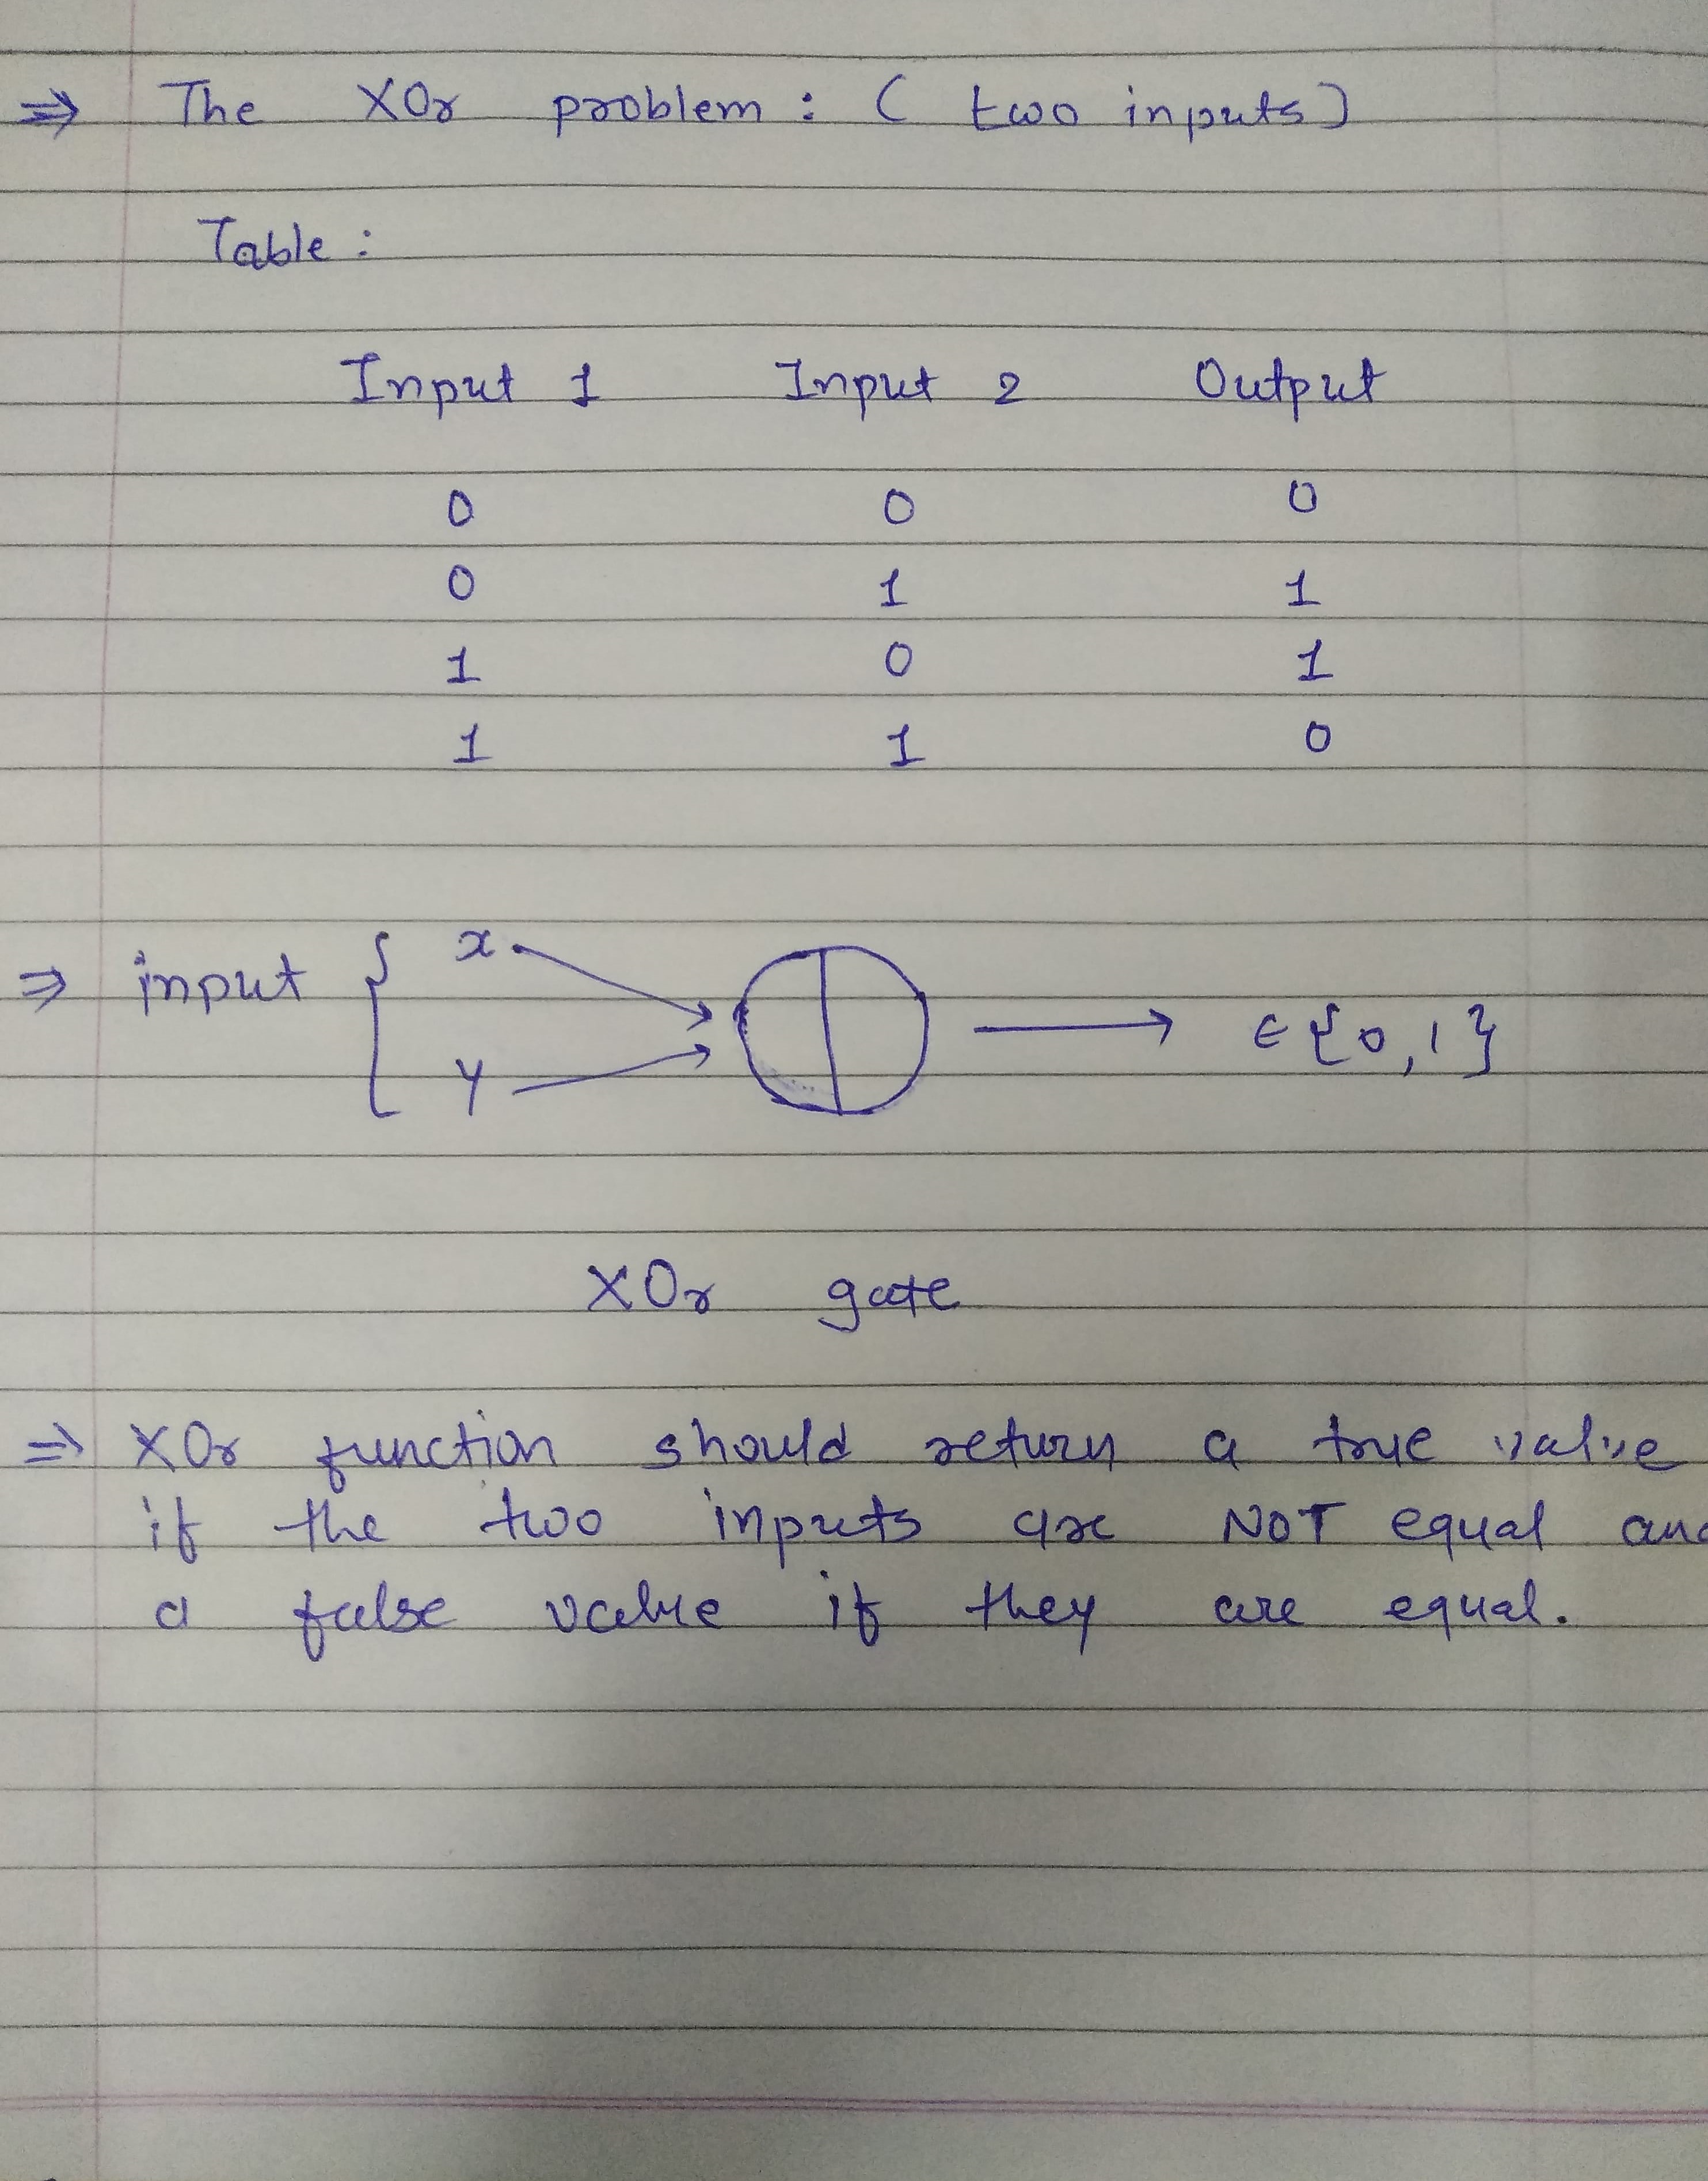 ⇒ The XOr problem : ( two inputs )
Table :
Input 1 Input 2 Output
0 0 0
0 1 1
1 0 1
1 1 0
x
⇒ input {
∈ {0,1}
y
XOr gate
⇒ XOr function should return a true value
if the two inputs are NOT equal
a false value if they are equal.